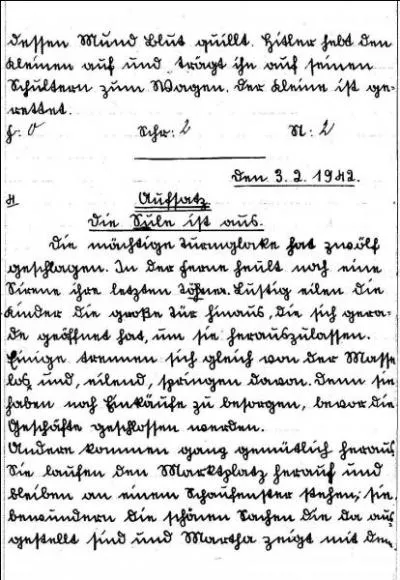 dessen Mund Blut quillt. Hitler hebt den
Kleinen auf und trägt ihn auf seinen
Schultern zum Wagen. Der Kleine ist ge-
rettet.
f: 0 Schr: 2 N: 2
Den 3. 2. 1942.
4 Aufsatz
Die Sule ist aus.
Die mächtige Turmgloke hat zwölf
geschlagen. In der Ferne heult noch eine
Sirene ihre letzten Töhne. Lustig eilen die
Kinder die große Tür hinaus, die sich gera-
de geöffnet hat, um sie herauszulassen.
Einige trennen sich gleich von der Masse
los, und, eilend, springen davon. Denn sie
haben noch Einkäufe zu besorgen, bevor die
Geschäfte geschlossen werden.
Andere kommen ganz gemütlich heraus
Sie laufen den Marktplatz herauf und
bleiben an einem Schaufenster stehen; sie
bewundern die schönen Sachen die da aus
gestellt sind und Martha zeigt mit dem